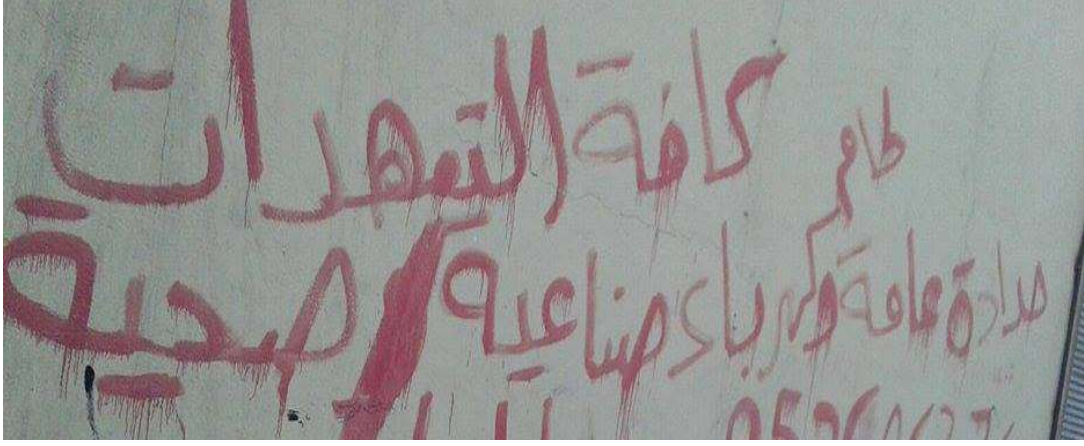 كافة التعهدات
حدادة عامة وكهرباء صناعية / صحية